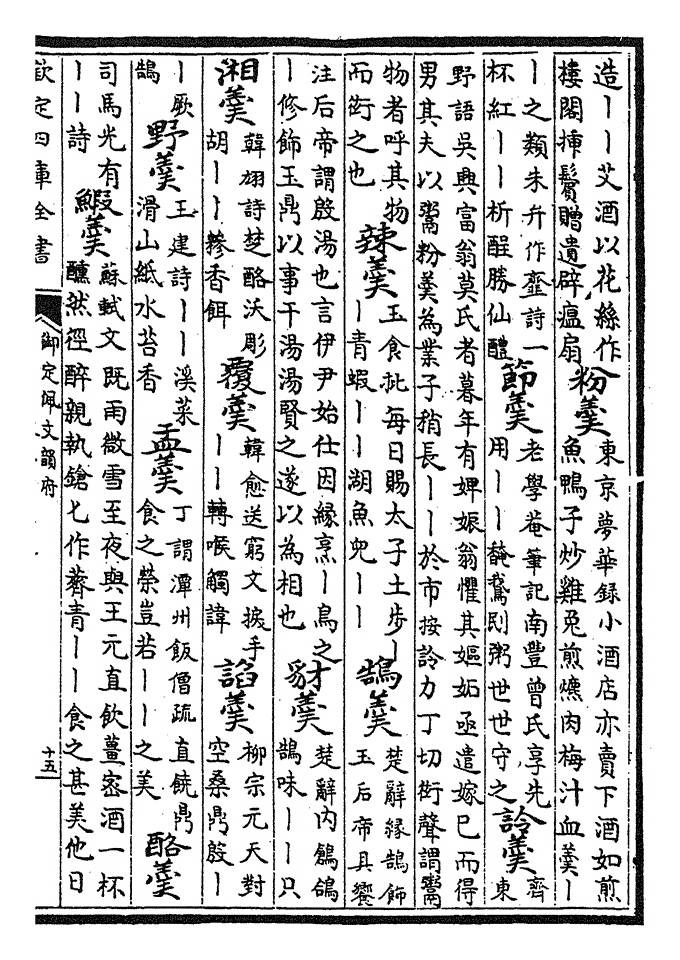 造丨丨艾酒以花絲作
樓閣揷鬢贈遺辟瘟扇
粉羹
東京夢華録小酒店亦賣下酒如煎
魚鴨子炒雞兔煎燠肉梅汁血羹丨
丨之類朱弁作虀詩一
杯紅丨丨析酲勝仙醴
節羹
老學菴筆記南豐曾氏享先
用丨丨醃鵞刞粥世世守之
詅羹
齊
東
野語吳興富翁莫氏者暮年有婢娠翁懼其嫗妬亟遣嫁已而得
男其夫以鬻粉羹為業子稍長丨丨於市按詅力丁切衒聲謂鬻
物者呼其物
而衒之也
辣羹
玉食批每日賜太子土步丨
丨青蝦丨丨湖魚兜丨丨
鵠羹
楚辭緣鵠飾
玉后帝具饗
注后帝謂殷湯也言伊尹始仕因緣烹丨鳥之
丨修飾玉鼎以事干湯湯賢之遂以為相也
豺羹
楚辭内鶬鴿
鵠味丨丨只
湘羹
韓翃詩楚酪沃彫
胡丨丨糝香餌
覆羹
韓愈送窮文捩手
丨丨轉喉觸諱
諂羹
柳宗元天對
空桑鼎殷丨
丨厥
鵠
野羹
王建詩丨丨溪菜
滑山紙水苔香
盂羹
丁謂潭州飯僧疏直饒鼎
食之榮豈若丨丨之美
酪羹
司馬光有
丨丨詩
鰕羹
蘇軾文既雨微雪至夜與王元直飲薑宻酒一杯
醺然徑醉親執鎗匕作薺青丨丨食之甚美他日
欽定四庫全書
御定佩文韻府
十五